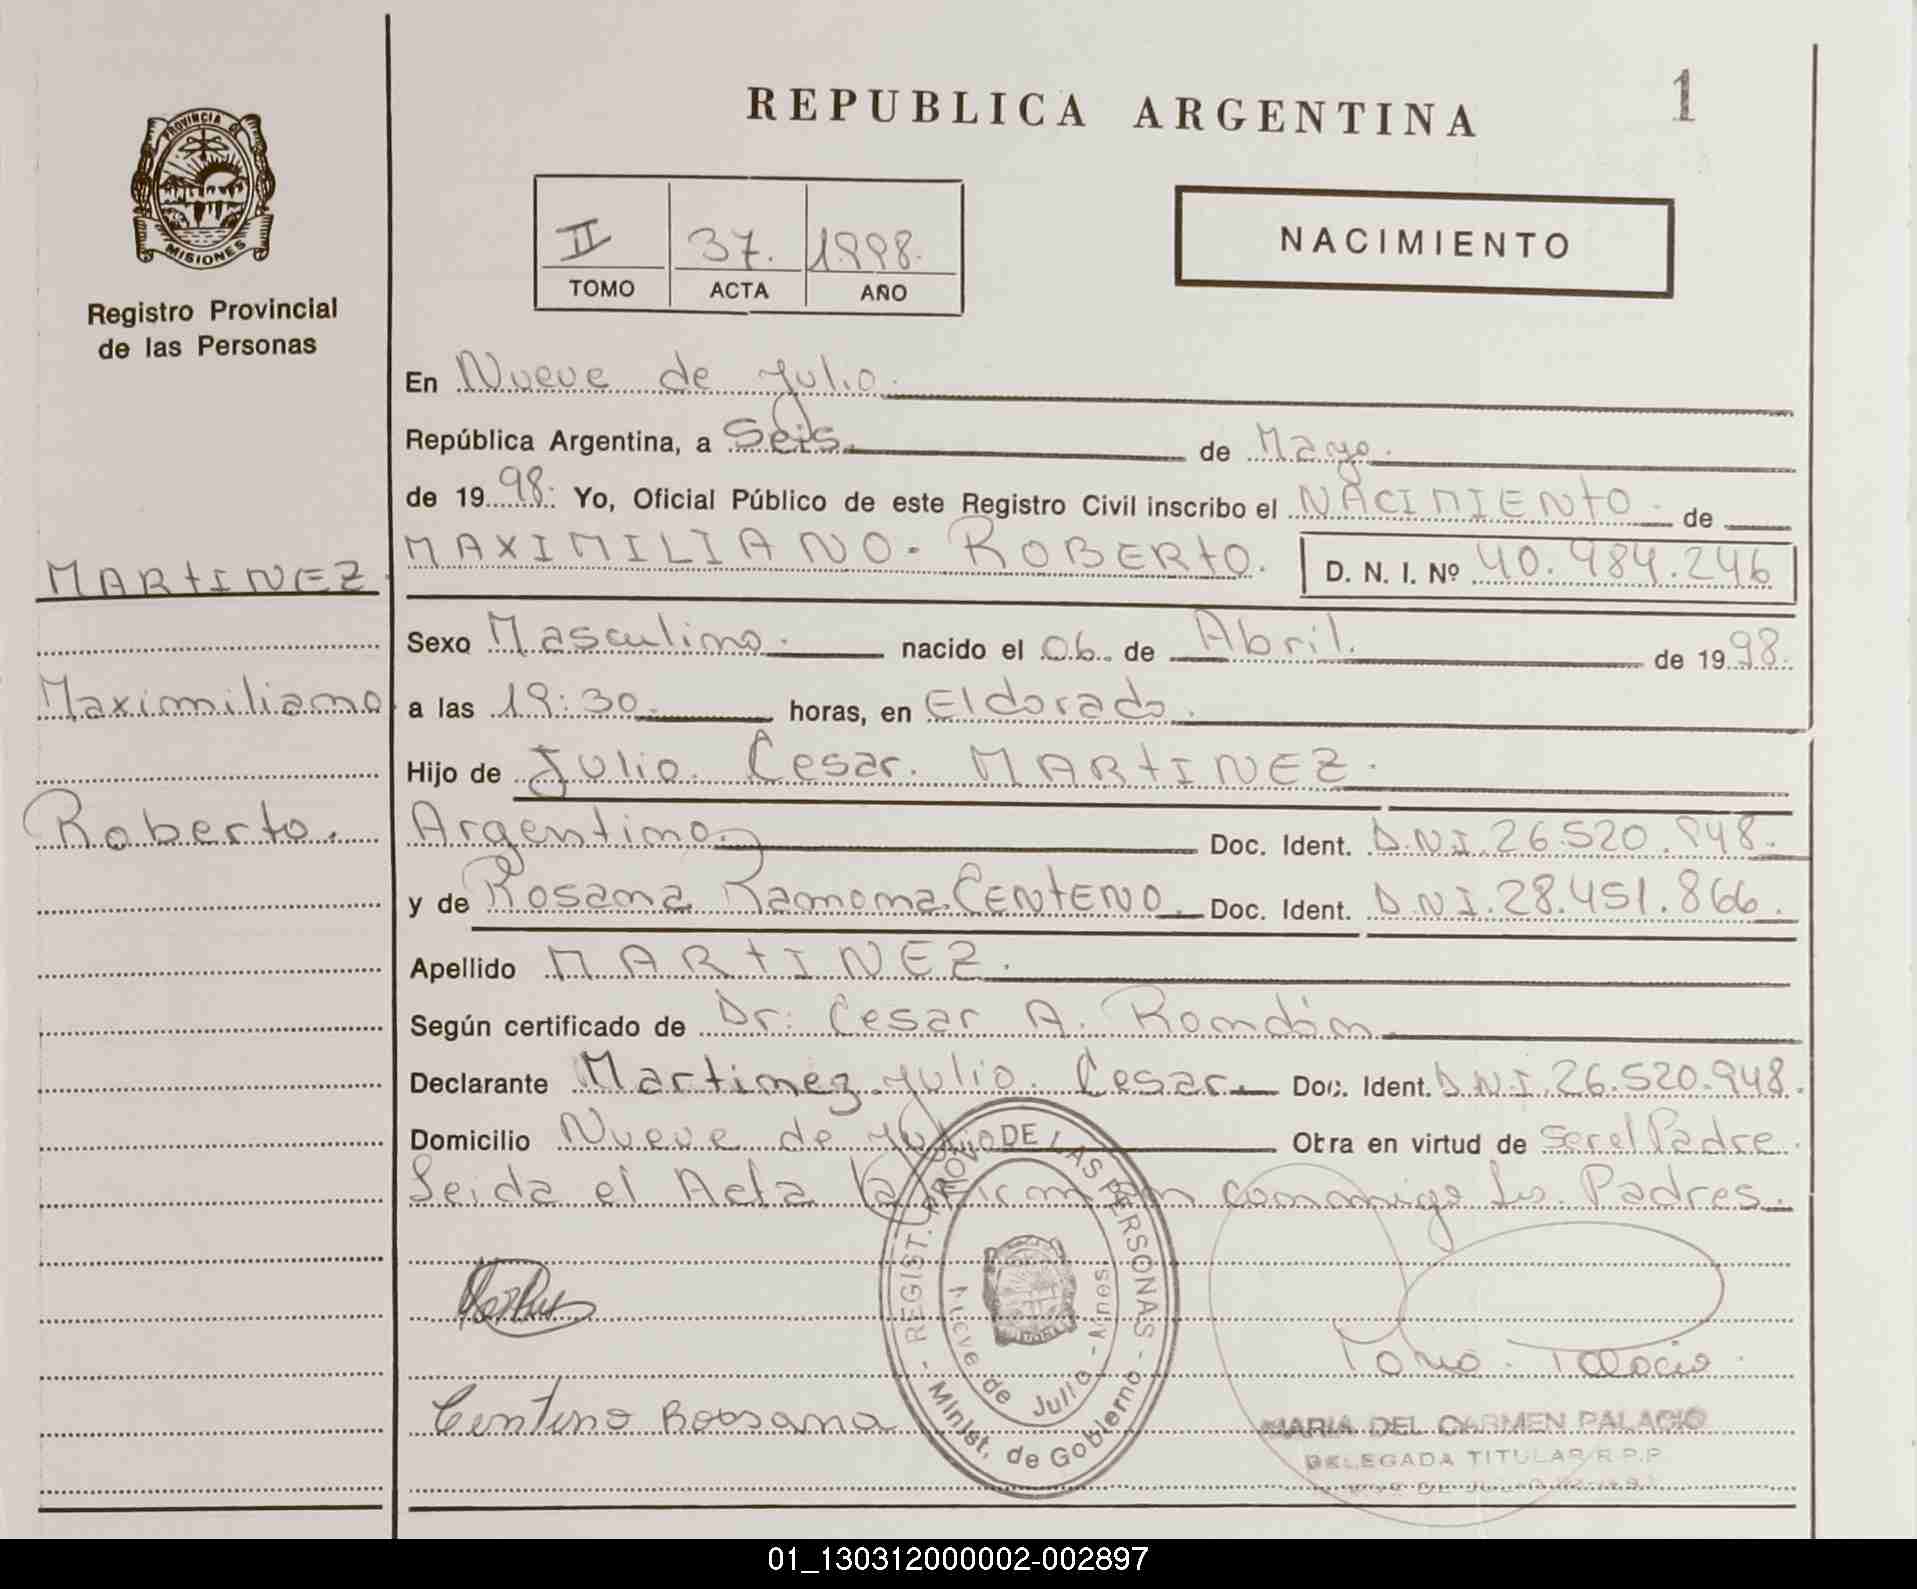 REPUBLICA ARGENTINA
1
PROVINCIA DE
MISIONES
Registro Provincial
de las Personas
II 37. 1998.
TOMO ACTA AÑO
NACIMIENTO
En Nueve de Julio.
República Argentina, a Seis. de Mayo.
de 1998. Yo, Oficial Público de este Registro Civil inscribo el NACIMIENTO de
MAXIMILIANO - ROBERTO. D. N. I. Nº 40.984.246
MARTINEZ
Sexo Masculino. nacido el 06. de Abril. de 1998.
Maximiliano
a las 19:30. horas, en Eldorado.
Hijo de Julio Cesar. MARTINEZ.
Roberto.
Argentino. Doc. Ident. D.N.I. 26.520.948.
y de Rosana Ramona CENTENO. Doc. Ident. D.N.I. 28.451.866.
Apellido MARTINEZ.
Según certificado de Dr: Cesar A.
Declarante Martinez Julio Cesar. Doc. Ident. D.N.I. 26.520.948.
Domicilio Nueve de Julio Obra en virtud de ser el Padre.
Leida el Acta la firman conmigo los Padres.
REGIST. PROV. DE LAS PERSONAS
Nueve de Julio - Mnes.
Minist. de Gobierno
Centeno Rossana
MARIA DEL CARMEN PALACIO
DELEGADA TITULAR R.P.P
01_130312000002-002897